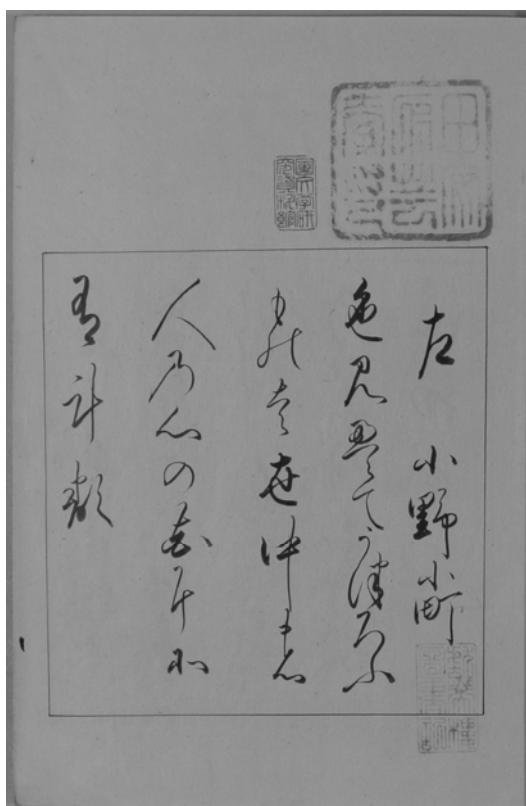 左 小野小町
色見えてうつろふ
ものは世中の
人の心の花にそ
有ける